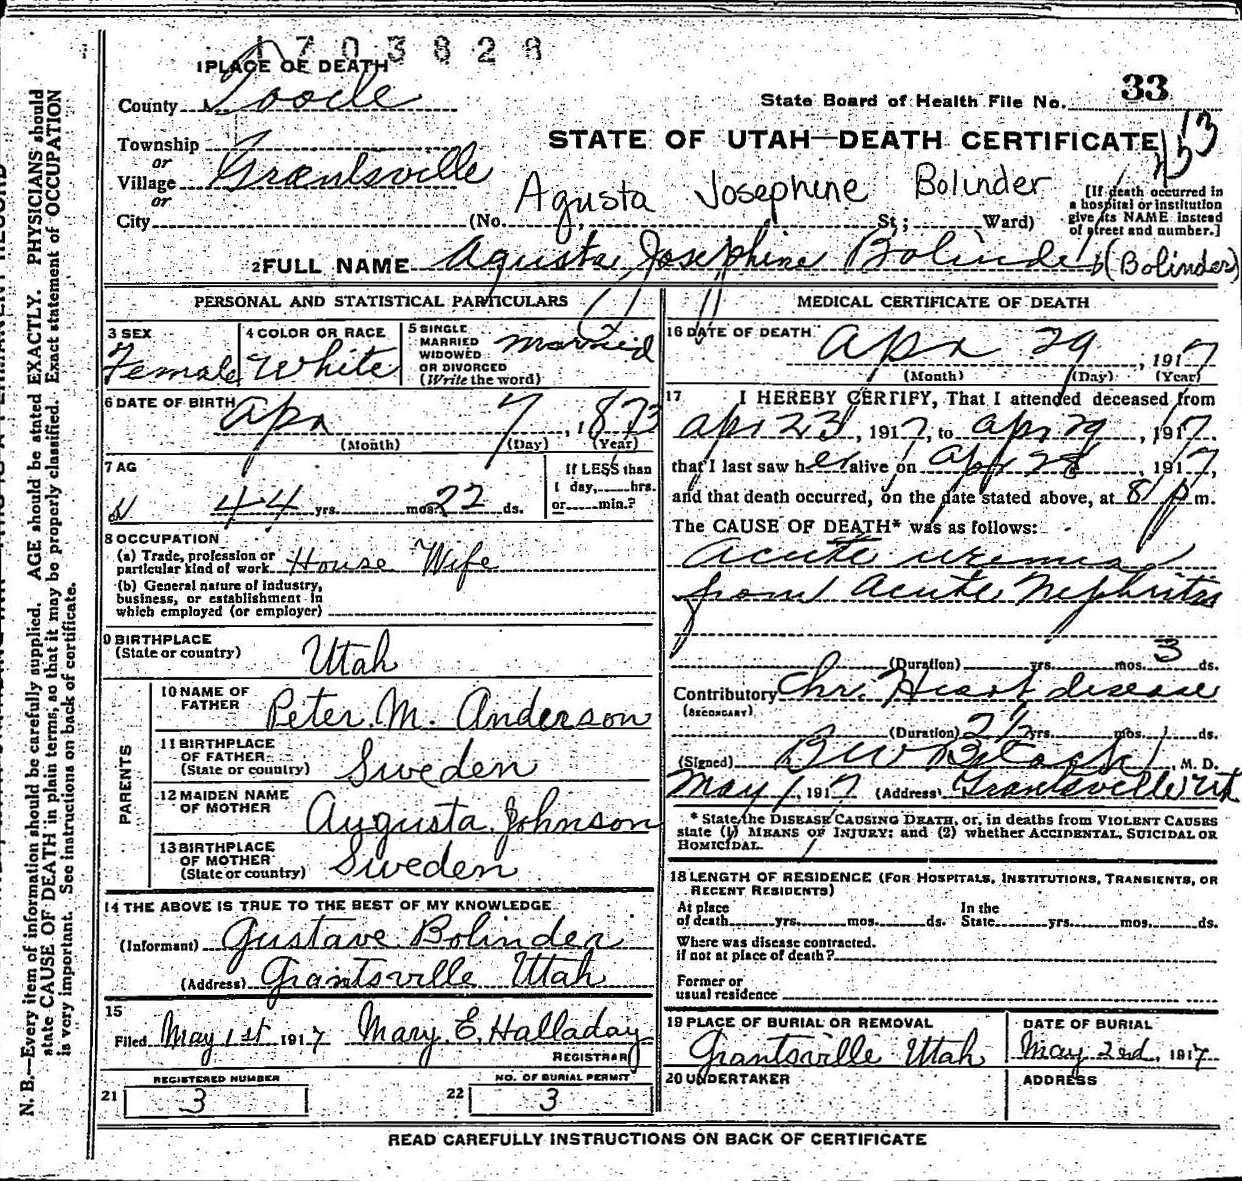 1703828
1 PLACE OF DEATH
County Tooele
State Board of Health File No. 33
Township
or
Village Grantsville
or
City
STATE OF UTAH—DEATH CERTIFICATE
(No. St; Ward)
Agusta Josephine Bolinder
[If death occurred in
a hospital or institution
give its NAME instead
of street and number.]
2 FULL NAME Agusta Josephine Bolinder (Bolinder)
PERSONAL AND STATISTICAL PARTICULARS
3 SEX
Female
4 COLOR OR RACE
White
5 SINGLE
MARRIED
WIDOWED
OR DIVORCED
(Write the word)
married
6 DATE OF BIRTH
Apr 7, 1873
(Month) (Day) (Year)
7 AG
44 yrs. mos. 22 ds.
If LESS than
1 day, hrs.
or min.?
8 OCCUPATION
(a) Trade, profession or
particular kind of work House Wife
(b) General nature of industry,
business, or establishment in
which employed (or employer)
9 BIRTHPLACE
(State or country)
Utah
PARENTS
10 NAME OF
FATHER
Peter M. Anderson
11 BIRTHPLACE
OF FATHER
(State or country)
Sweden
12 MAIDEN NAME
OF MOTHER
Augusta Johnson
13 BIRTHPLACE
OF MOTHER
(State or country)
Sweden
14 THE ABOVE IS TRUE TO THE BEST OF MY KNOWLEDGE
(Informant) Gustave Bolinder
(Address) Grantsville Utah
15
Filed May 1st 1917 Mary E. Halladay
REGISTRAR
REGISTERED NUMBER
21 3
NO. OF BURIAL PERMIT
22 3
MEDICAL CERTIFICATE OF DEATH
16 DATE OF DEATH
Apr 29, 1917
(Month) (Day) (Year)
17 I HEREBY CERTIFY, That I attended deceased from
Apr 23, 1917, to Apr 29, 1917.
that I last saw her alive on Apr 28, 1917,
and that death occurred, on the date stated above, at 8 p m.
The CAUSE OF DEATH* was as follows:
Acute uremia
from Acute Nephritis
(Duration) yrs. mos. 3 ds.
Contributory Chr. Heart disease
(SECONDARY)
(Duration) 2½ yrs. mos. ds.
(Signed) , M. D.
May 1, 1917 (Address) Grantsville Ut
* State the DISEASE CAUSING DEATH, or, in deaths from VIOLENT CAUSES
state (1) MEANS OF INJURY; and (2) whether ACCIDENTAL, SUICIDAL OR
HOMICIDAL.
18 LENGTH OF RESIDENCE (FOR HOSPITALS, INSTITUTIONS, TRANSIENTS, OR
RECENT RESIDENTS)
At place
of death yrs. mos. ds.
In the
State yrs. mos. ds.
Where was disease contracted.
if not at place of death?
Former or
usual residence
19 PLACE OF BURIAL OR REMOVAL
Grantsville Utah
DATE OF BURIAL
May 2nd, 1917
20 UNDERTAKER
ADDRESS
READ CAREFULLY INSTRUCTIONS ON BACK OF CERTIFICATE
N. B.—Every item of information should be carefully supplied. AGE should be stated EXACTLY. PHYSICIANS should
state CAUSE OF DEATH in plain terms, so that it may be properly classified. Exact statement of OCCUPATION
is very important. See instructions on back of certificate.